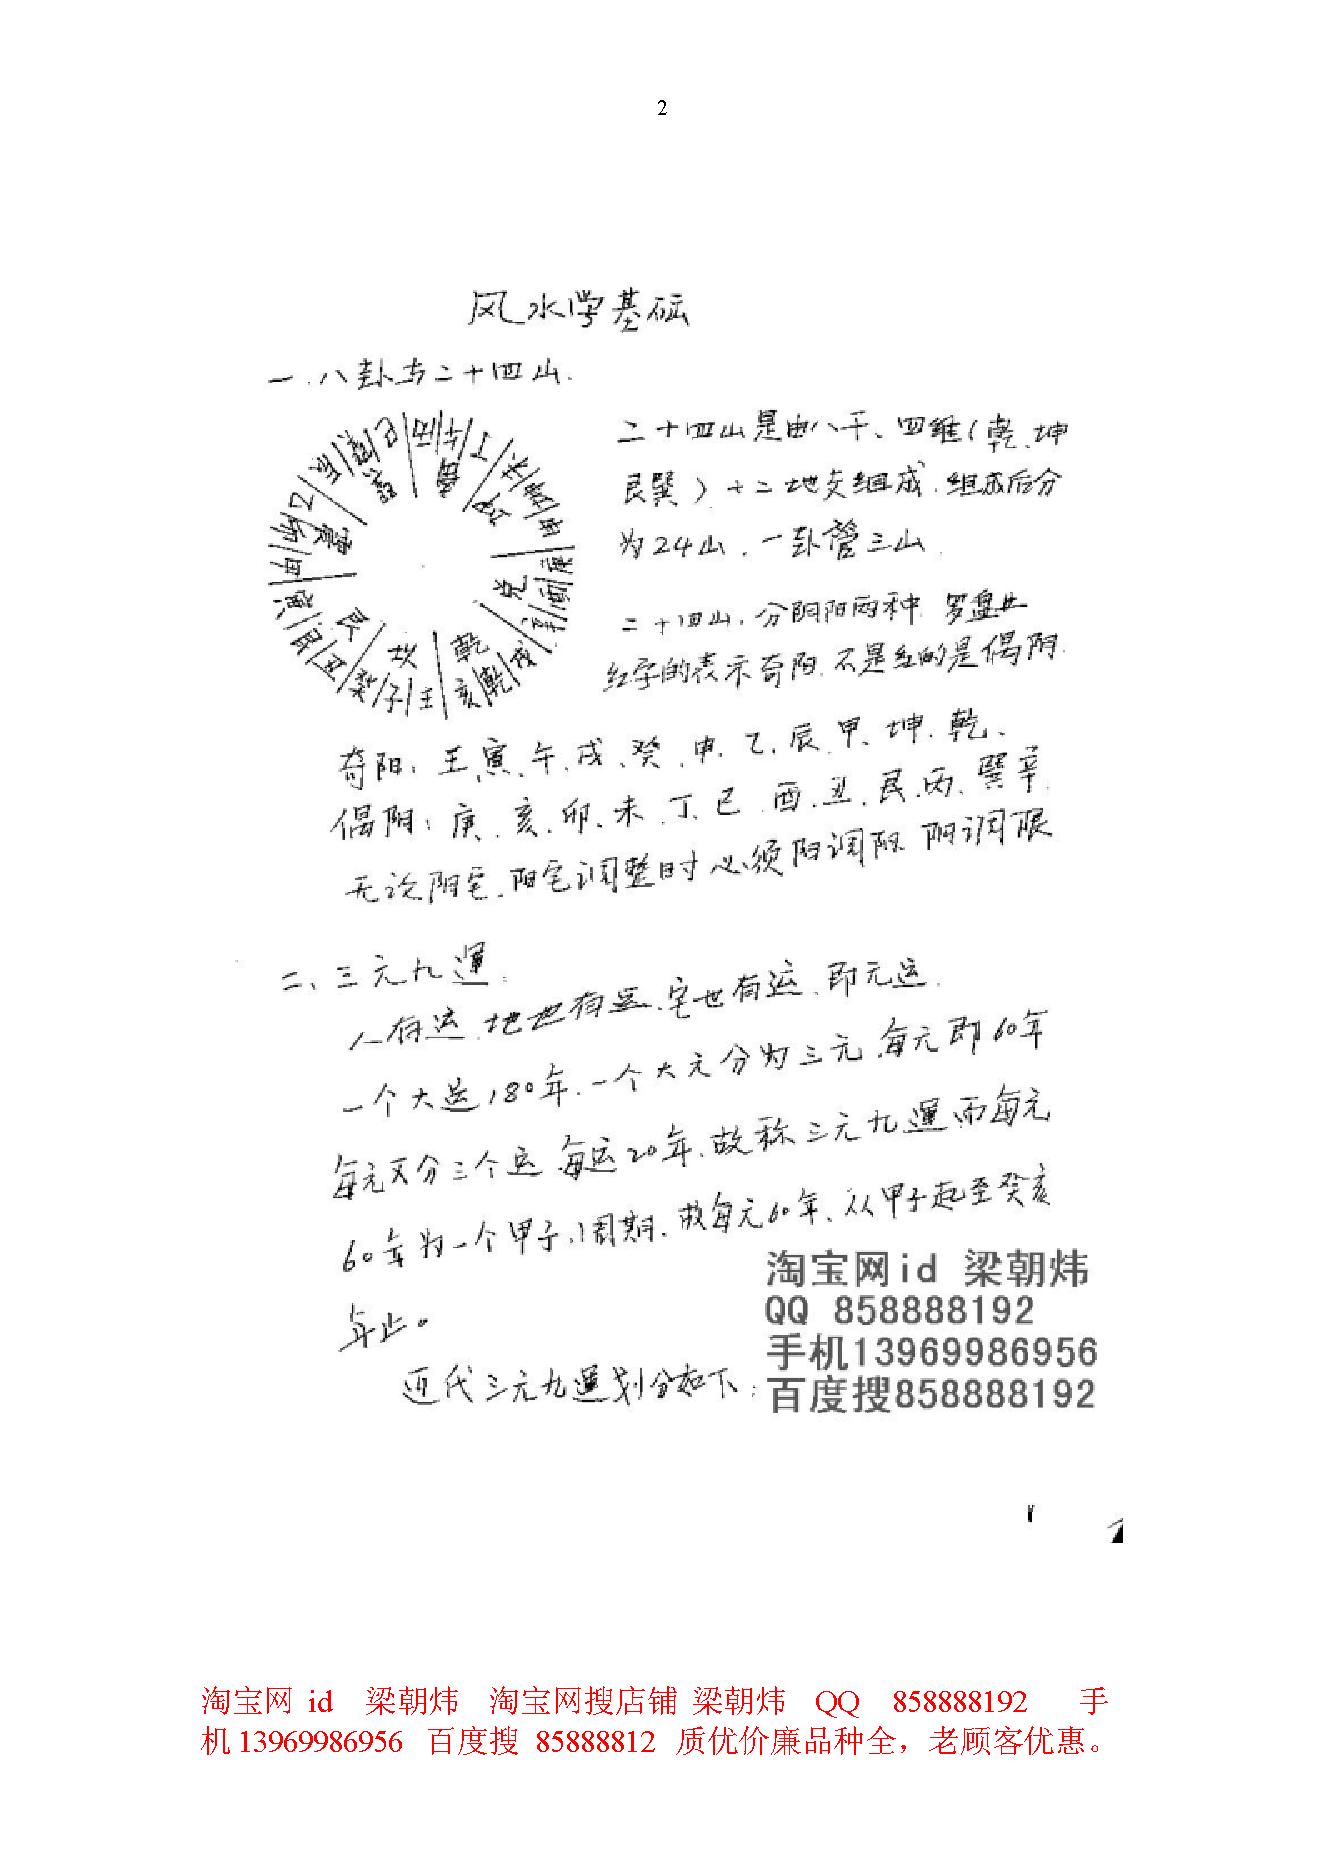 2
风水学基础
一.八卦与二十四山.
二十四山是由八干、四维(乾、坤
艮巽)十二地支组成.组成后分
为24山.一卦管三山
二十四山.分阴阳两种.罗盘上
红字的表示奇阳.不是红的是偶阴.
巳 丙 午 丁 未 坤 申 庚 酉 辛 戌 乾 亥 壬 子 癸 丑 艮 寅 甲 卯 乙 辰 巽
离 坤 兑 乾 坎 艮 震 巽
奇阳:壬、寅、午、戌、癸、申、乙、辰、甲、坤、乾、
偶阴:庚、亥、卯、未、丁、巳、酉、丑、艮、丙、巽辛
无论阴宅、阳宅调整时必须阳调阳 阴调阴
二、三元九運:
人有运.地也有运.宅也有运.即元运.
一个大运180年.一个大元分为三元.每元即60年
每元又分三个运 每运20年.故称三元九運 而每元
60年为一个甲子小周期.故每元60年、从甲子起至癸亥
年止。
近代三元九運划分如下:
淘宝网id 梁朝炜
QQ 858888192
手机13969986956
百度搜858888192
淘宝网 id 梁朝炜 淘宝网搜店铺 梁朝炜 QQ 858888192 手
机 13969986956 百度搜 85888812 质优价廉品种全，老顾客优惠。